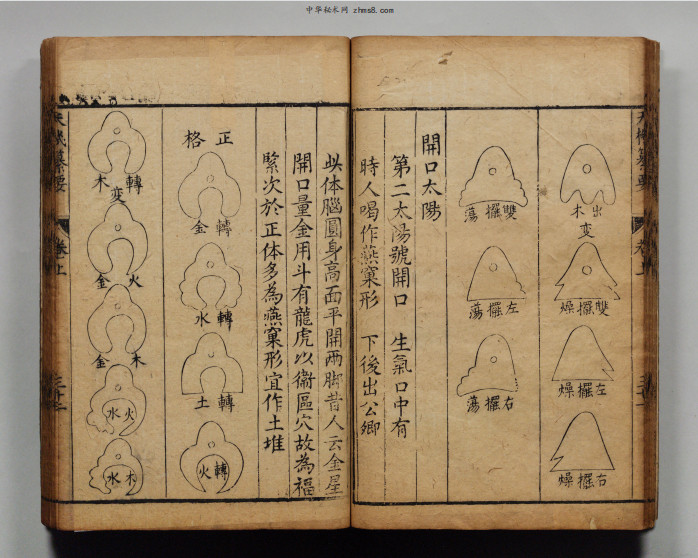 中华秘术网 zhms8.com
卷上
出木
變
雙擺燥
左擺燥
右擺燥
雙擺蕩
左擺蕩
右擺蕩
開口太陽
第二太陽號開口 生氣口中有
時人喝作燕窠形 下後出公卿
此体腦圓身高面平開兩脚昔人云金星
開口量金用斗有龍虎以衛區穴故為福
緊次於正体多為燕窠形宜作土堆
正格
轉金
轉水
轉土
轉火
轉木
變
火金
木金
火水
木水
天機纂要
卷上